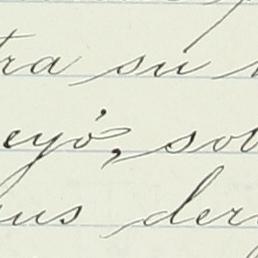 tra su
eyó, sob
us der